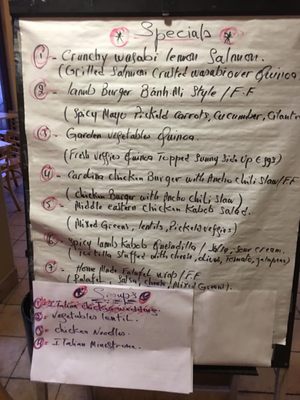 * Specials *
1 - Crunchy wasabi lemon Salmon.
(Grilled Salmon crusted wasabi over Quinoa
2 - lamb Burger Bánh-Mi Style / F.F
(Spicy Mayo Pickeld carrots, Cucumber, Cilantr
3 - Garden vegetables Quinoa.
(Fresh veggies Quinoa Topped Sunny Side Up Eggs)
4 - Carolina chicken Burger with Ancho Chili Slaw/FF
(chicken Burger with Ancho Chili slaw)
5 - Middle eastern chicken Kabob Salad.
(Mixed Greens, lentils, Pickeld veggies)
6 - Spicy lamb Kabob Quesadilla / Sour cream.
(tortilla stuffed with cheese, olives, Tomato, Jalapenos)
7 - Home Made Falafel wrap / F.F
(Falafel, Salsa, cheese, Mixed Greens).
* Soups *
1 - Italian
2 - Vegetables lentil.
3 - chicken Noodles.
4 - Italian Minestrone.